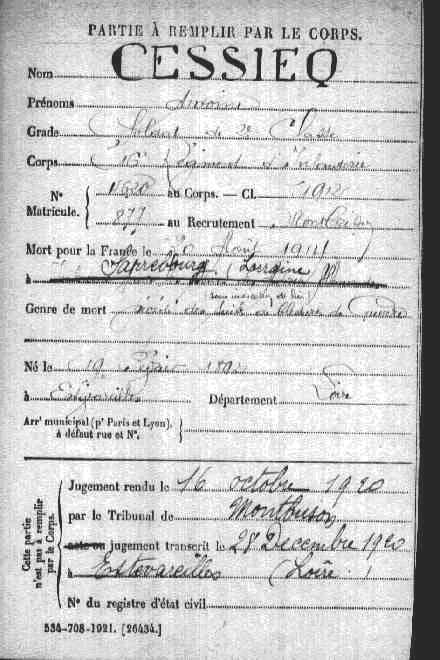 PARTIE À REMPLIR PAR LE CORPS.
Nom CESSIEQ
Prénoms Antoine
Grade Soldat de 2e Classe
Corps 16e Régiment d'Infanterie
N° Matricule. { au Corps. — Cl. 1912
877 au Recrutement Montbrison
Mort pour la France le 20 Août 1914
à Sarrebourg (Lorraine)
Genre de mort des suites de blessures de guerre
Né le 19
à Estivareilles Département Loire
Arrt municipal (pr Paris et Lyon), à défaut rue et N°.
Cette partie n'est pas à remplir par le Corps.
Jugement rendu le 16 octobre 1920
par le Tribunal de Montbrison
acte ou jugement transcrit le 28 Decembre 1920
à Estevareilles (Loire)
N° du registre d'état civil
534-708-1921. [26434.]